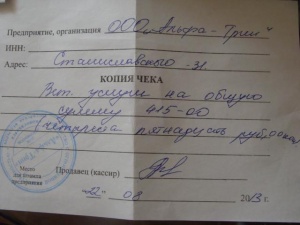 Предприятие, организация ООО „Альфа-Трейд"
ИНН:
Адрес: Станиславского -31
КОПИЯ ЧЕКА
Вет. услуги на общую
сумму 415-00
(четыреста пятнадцать рублей)
Место
для штампа
предприятия
Продавец (кассир)
"2" 08 2013 г.